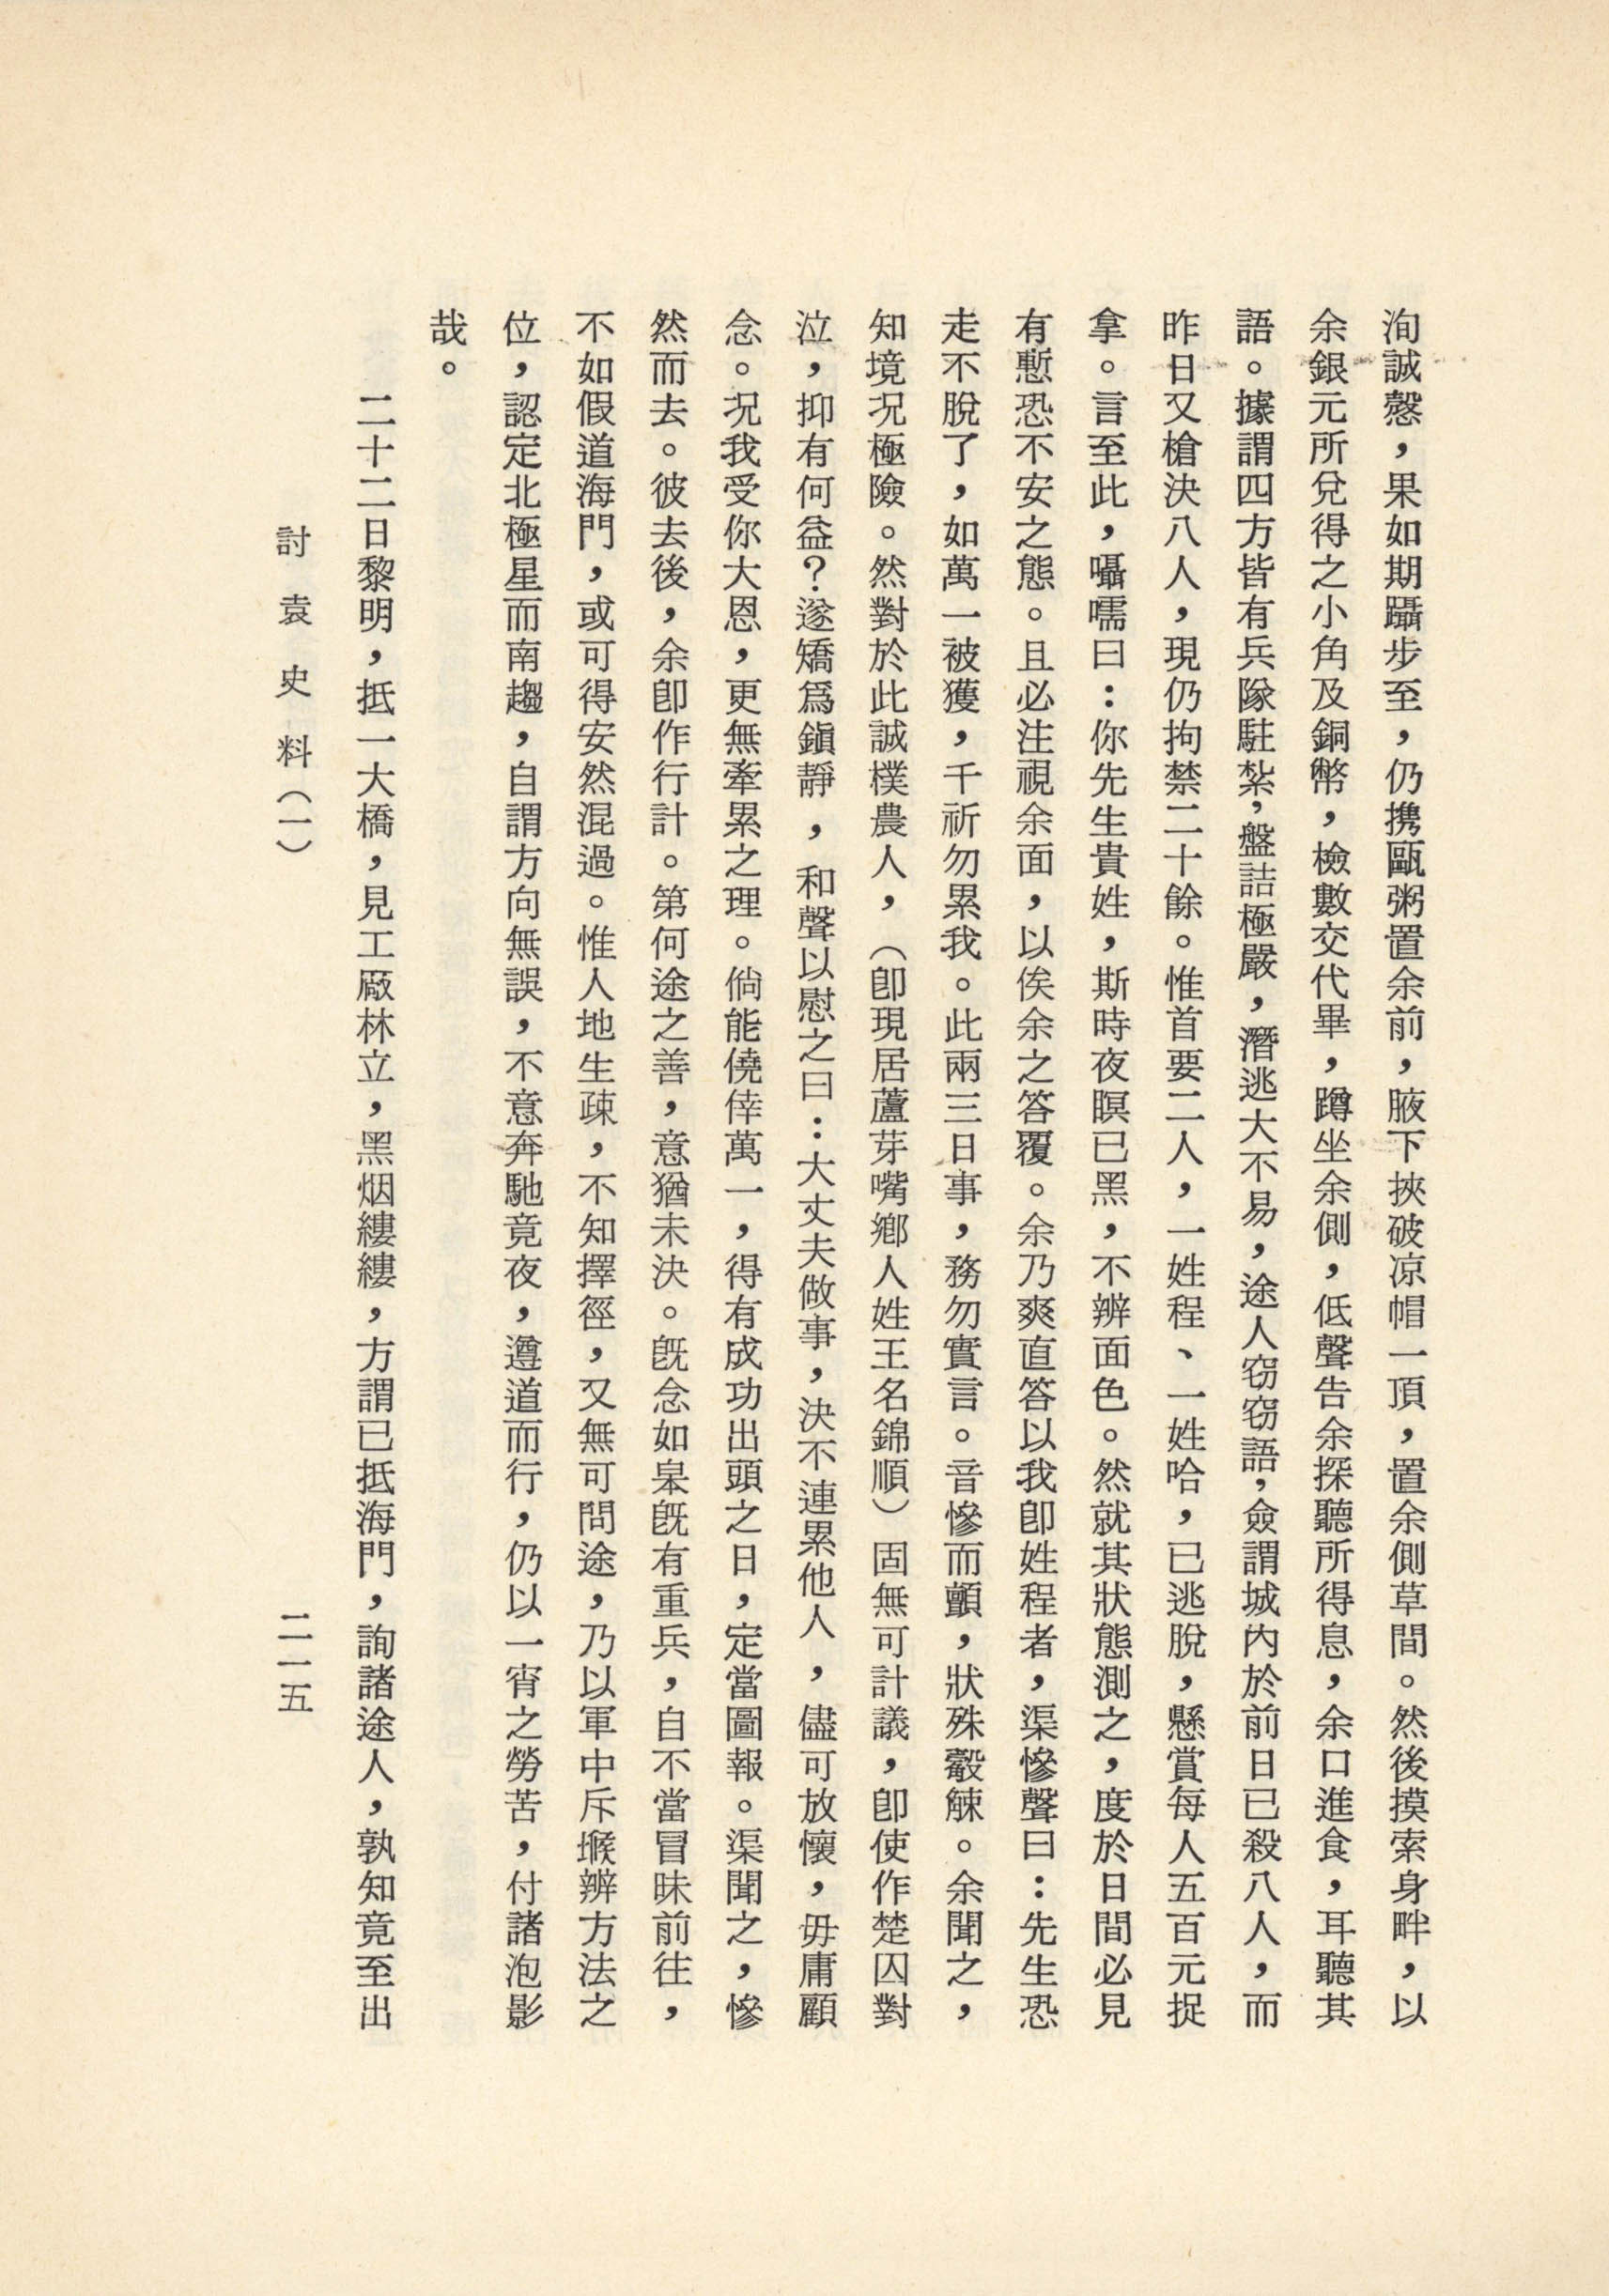 洵誠慤，果如期躡步至，仍携甌粥置余前，腋下挾破凉帽一頂，置余側草間。然後摸索身畔，以
余銀元所兌得之小角及銅幣，檢數交代畢，蹲坐余側，低聲告余探聽所得息，余口進食，耳聽其
語。據謂四方皆有兵隊駐紮，盤詰極嚴，潛逃大不易，途人窃窃語，僉謂城內於前日已殺八人，而
昨日又槍決八人，現仍拘禁二十餘。惟首要二人，一姓程、一姓哈，已逃脫，懸賞每人五百元捉
拿。言至此，囁嚅曰：你先生貴姓，斯時夜暝已黑，不辨面色。然就其狀態測之，度於日間必見
有慙恐不安之態。且必注視余面，以俟余之答覆。余乃爽直答以我卽姓程者，渠慘聲曰：先生恐
走不脫了，如萬一被獲，千祈勿累我。此兩三日事，務勿實言。音慘而顫，狀殊觳觫。余聞之，
知境況極險。然對於此誠樸農人，（卽現居蘆芽嘴鄉人姓王名錦順）固無可計議，卽使作楚囚對
泣，抑有何益？遂矯爲鎭靜，和聲以慰之曰：大丈夫做事，決不連累他人，儘可放懷，毋庸顧
念。况我受你大恩，更無牽累之理。倘能僥倖萬一，得有成功出頭之日，定當圖報。渠聞之，慘
然而去。彼去後，余卽作行計。第何途之善，意猶未決。旣念如皋旣有重兵，自不當冒昧前往，
不如假道海門，或可得安然混過。惟人地生疎，不知擇徑，又無可問途，乃以軍中斥堠辨方法之
位，認定北極星而南趨，自謂方向無誤，不意奔馳竟夜，遵道而行，仍以一宵之勞苦，付諸泡影
哉。
二十二日黎明，抵一大橋，見工廠林立，黑烟縷縷，方謂已抵海門，詢諸途人，孰知竟至出
討袁史料（一）
二一五